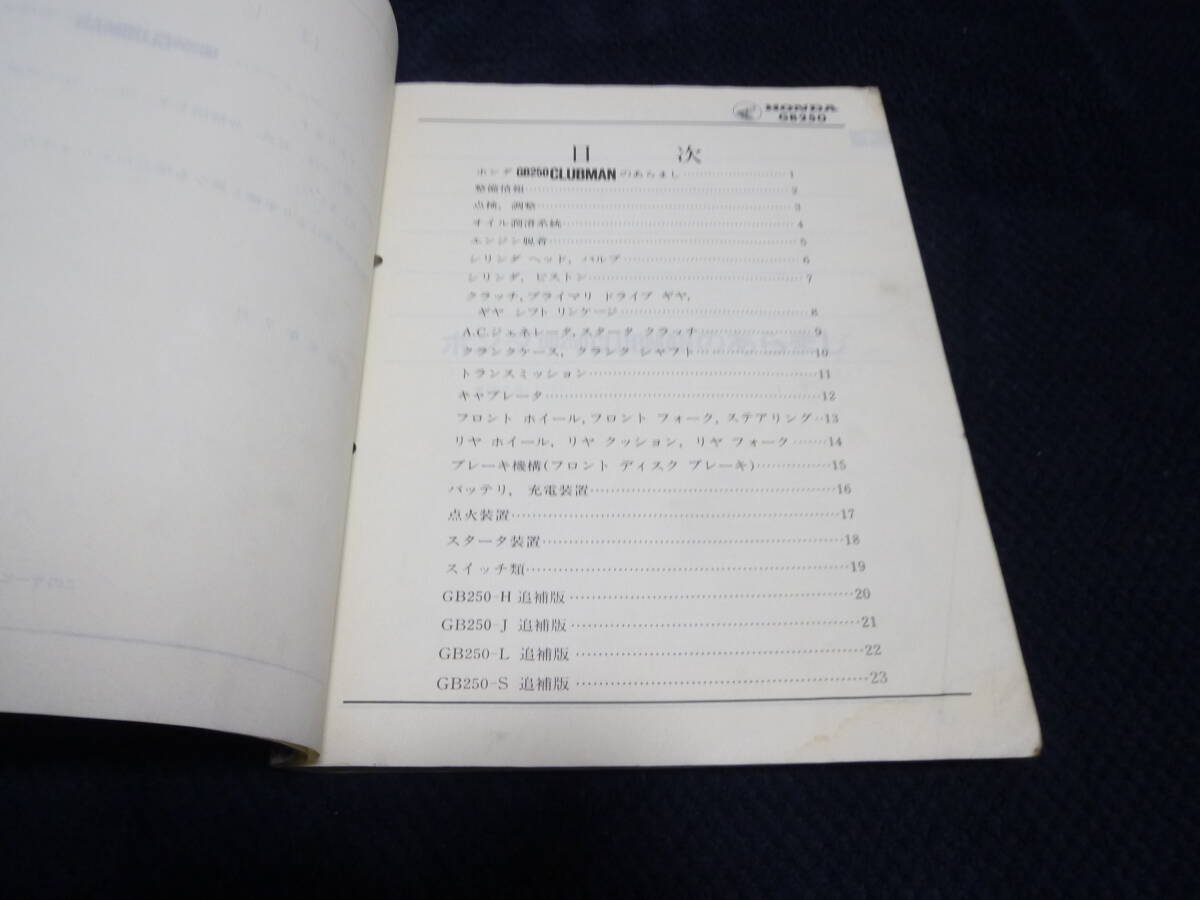 HONDA
GB250
目 次
ホンダ GB250 CLUBMAN のあらまし……………………1
整備情報……………………2
点検, 調整……………………3
オイル潤滑系統……………………4
エンジン脱着……………………5
シリンダ ヘッド, バルブ……………………6
シリンダ, ピストン……………………7
クラッチ, プライマリ ドライブ ギヤ,
ギヤ シフト リンケージ……………………8
A.C.ジェネレータ, スタータ クラッチ……………………9
クランクケース, クランク シャフト……………………10
トランスミッション……………………11
キャブレータ……………………12
フロント ホイール, フロント フォーク, ステアリング…13
リヤ ホイール, リヤ クッション, リヤ フォーク……14
ブレーキ機構(フロント ディスク ブレーキ)……………15
バッテリ, 充電装置……………………16
点火装置……………………17
スタータ装置……………………18
スイッチ類……………………19
GB250-H 追補版……………………20
GB250-J 追補版……………………21
GB250-L 追補版……………………22
GB250-S 追補版……………………23